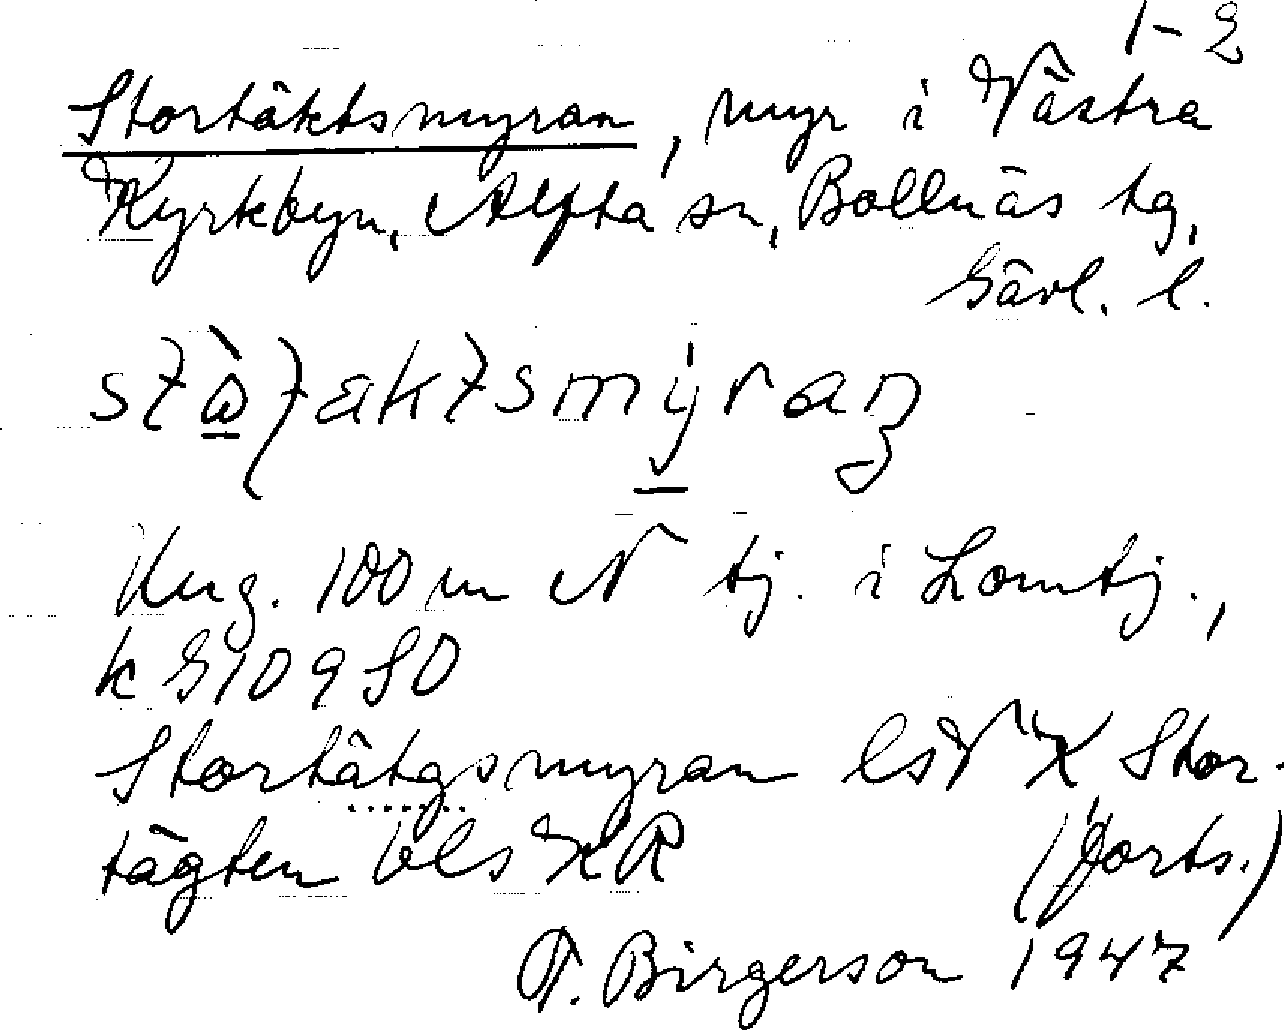 1-2
Stortäktsmyran, myr i Västra
Kyrkbyn, Alfta sn, Bollnäs tg,
Gävl. l.
Ung. 100 m N tj. i Lomtj.,
k G10980
Stortätgsmyran lsV X Stor-
tägten bls XR (forts.)
T. Birgerson 1947